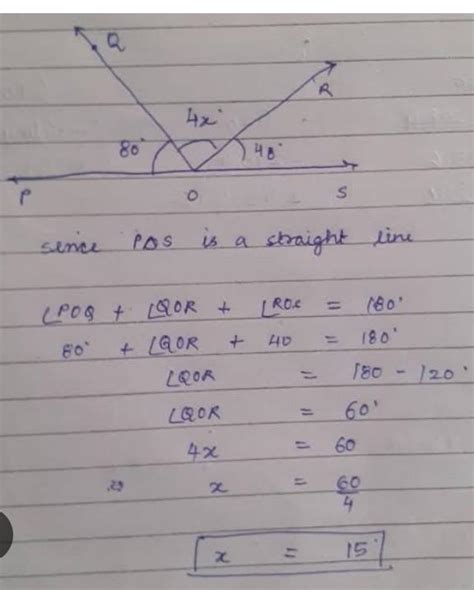 Q
R
4x°
80°
48°
P
O
S
since POS is a straight line
∠POQ + ∠QOR + ∠ROS = 180°
80° + ∠QOR + 40 = 180°
∠QOR = 180 - 120°
∠QOR = 60°
4x = 60
x = 60/4
x = 15°